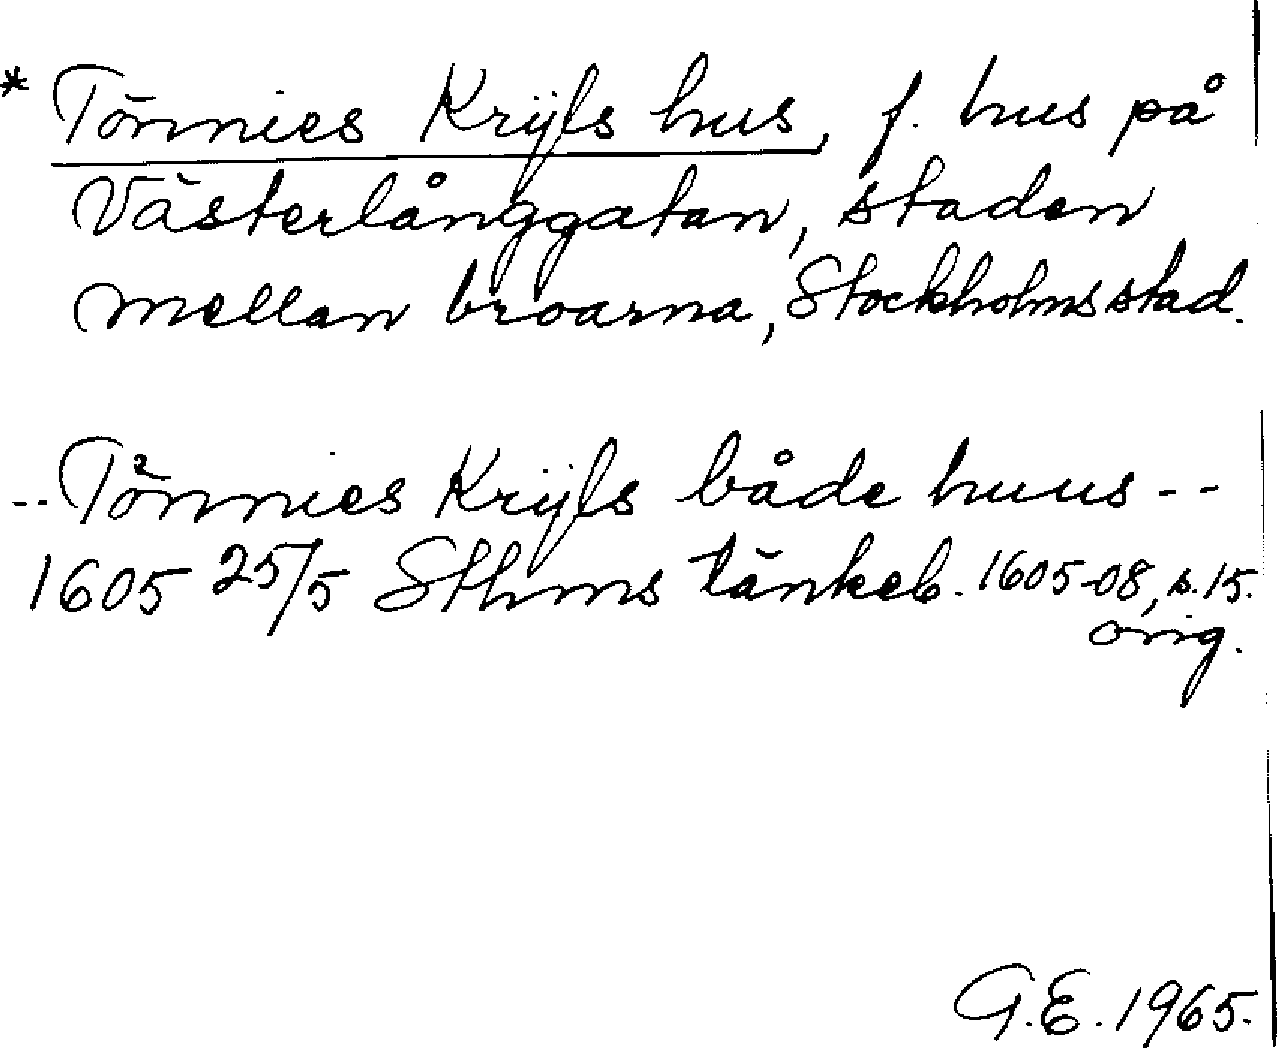 * Tönnies Krÿls hus, f. hus på
Västerlånggatan, staden
mellan broarna, Stockholms stad.
-- Tönnies Krÿls både huus --
1605 25/5 Sthms tänkeb. 1605-08, s. 15.
orig.
G.E. 1965.